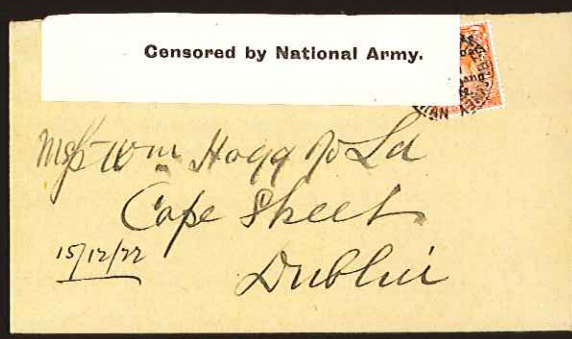 Censored by National Army.
Wm Hogg & Co Ld
Cape Street
15/12/22
Dublin